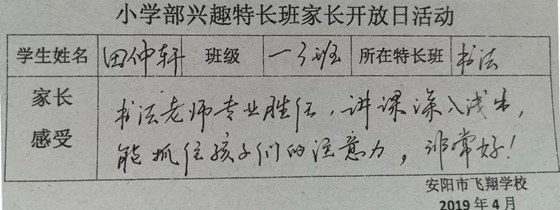 小学部兴趣特长班家长开放日活动
学生姓名 田仲轩 班级 一3班 所在特长班 书法
家长
感受
书法老师专业胜任，讲课深入浅出，
能抓住孩子们的注意力，非常好！
安阳市飞翔学校
2019年4月